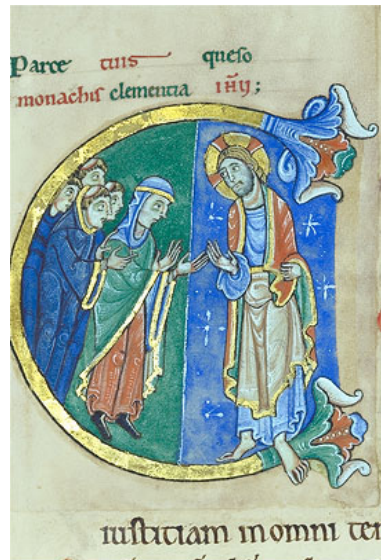 Parce tuis queso
monachis clementia ihu;
iustitiam in omni tem